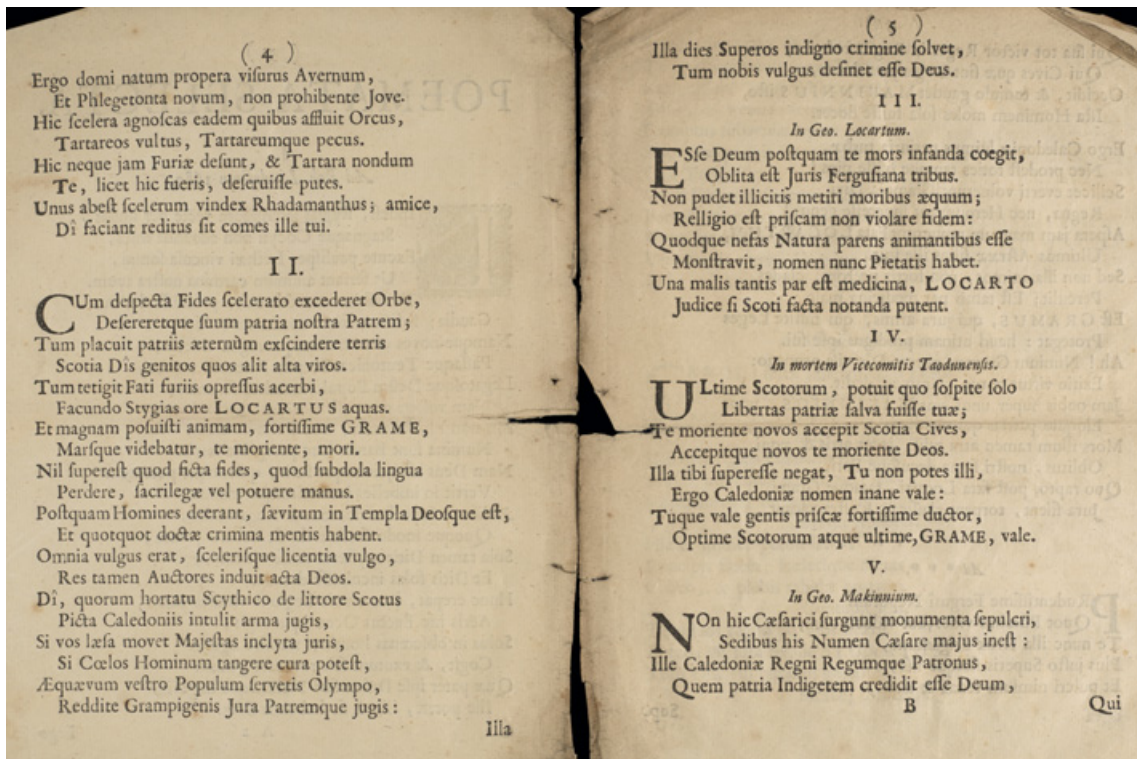 ( 4 )
Ergo domi natum propera viſurus Avernum,
Et Phlegetonta novum, non prohibente Jove.
Hic ſcelera agnoſcas eadem quibus affluit Orcus,
Tartareos vultus, Tartareumque pecus.
Hic neque jam Furiæ deſunt, & Tartara nondum
Te, licet hic fueris, deſeruiſſe putes.
Unus abeſt ſcelerum vindex Rhadamanthus; amice,
Dî faciant reditus ſit comes ille tui.
II.
CUm deſpecta Fides ſcelerato excederet Orbe,
Deſereretque ſuum patria noſtra Patrem;
Tum placuit patriis æternùm exſcindere terris
Scotia Dîs genitos quos alit alta viros.
Tum tetigit Fati furiis oppreſſus acerbi,
Facundo Stygias ore LOCARTUS aquas.
Et magnam poſuiſti animam, fortiſſime GRAME,
Marſque videbatur, te moriente, mori.
Nil ſupereſt quod ficta fides, quod ſubdola lingua
Perdere, ſacrilegæ vel potuere manus.
Poſtquam Homines deerant, ſævitum in Templa Deoſque eſt,
Et quotquot doctæ crimina mentis habent.
Omnia vulgus erat, ſceleriſque licentia vulgo,
Res tamen Auctores induit acta Deos.
Dî, quorum hortatu Scythico de littore Scotus
Picta Caledoniis intulit arma jugis,
Si vos læſa movet Majeſtas inclyta juris,
Si Cœlos Hominum tangere cura poteſt,
Æquævum veſtro Populum ſervetis Olympo,
Reddite Grampigenis Jura Patremque jugis:
Illa
( 5 )
Illa dies Superos indigno crimine ſolvet,
Tum nobis vulgus deſinet eſſe Deus.
III.
In Geo. Locartum.
ESſe Deum poſtquam te mors infanda coegit,
Oblita eſt Juris Ferguſiana tribus.
Non pudet illicitis metiri moribus æquum;
Relligio eſt priſcam non violare fidem:
Quodque nefas Natura parens animantibus eſſe
Monſtravit, nomen nunc Pietatis habet.
Una malis tantis par eſt medicina, LOCARTO
Judice ſi Scoti facta notanda putent.
IV.
In mortem Vicecomitis Taodunenſis.
ULtime Scotorum, potuit quo ſoſpite ſolo
Libertas patriæ ſalva fuiſſe tuæ;
Te moriente novos accepit Scotia Cives,
Accepitque novos te moriente Deos.
Illa tibi ſupereſſe negat, Tu non potes illi,
Ergo Caledoniæ nomen inane vale:
Tuque vale gentis priſcæ fortiſſime ductor,
Optime Scotorum atque ultime, GRAME, vale.
V.
In Geo. Makinnium.
NOn hic Cæſarici ſurgunt monumenta ſepulcri,
Sedibus his Numen Cæſare majus ineſt:
Ille Caledoniæ Regni Regumque Patronus,
Quem patria Indigetem credidit eſſe Deum,
B
Qui